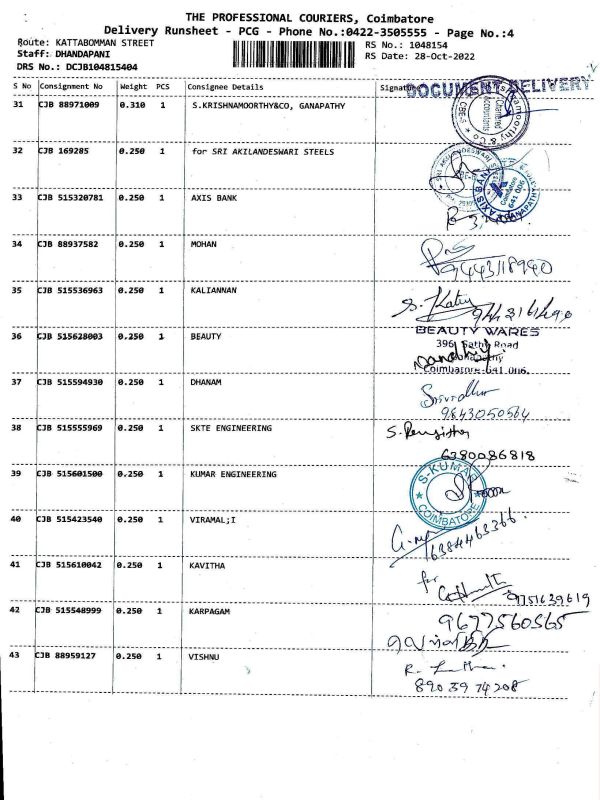 THE PROFESSIONAL COURIERS, Coimbatore
Delivery Runsheet - PCG - Phone No.:0422-3505555 - Page No.:4
Route: KATTABOMMAN STREET
Staff: DHANDAPANI
DRS No.: DCJB104815404
RS No.: 1048154
RS Date: 28-Oct-2022
S No Consignment No Weight PCS Consignee Details Signature
DOCUMENT DELIVERY
31 CJB 88971009 0.310 1 S.KRISHNAMOORTHY&CO, GANAPATHY
Chartered Accountants
32 CJB 169285 0.250 1 for SRI AKILANDESWARI STEELS
33 CJB 515320781 0.250 1 AXIS BANK
AXIS BANK
Coimbatore
641 006
GANAPATHY
34 CJB 88937582 0.250 1 MOHAN
9443118940
35 CJB 515536963 0.250 1 KALIANNAN
36 CJB 515628003 0.250 1 BEAUTY
BEAUTY WARES
396, Sathy Road
Coimbatore-641 006.
37 CJB 515594930 0.250 1 DHANAM
9843050564
38 CJB 515555969 0.250 1 SKTE ENGINEERING
6380086818
39 CJB 515601500 0.250 1 KUMAR ENGINEERING
S-KUMAR
COIMBATORE
40 CJB 515423540 0.250 1 VIRAMAL;I
6384463366
41 CJB 515610042 0.250 1 KAVITHA
for
9751639619
42 CJB 515548999 0.250 1 KARPAGAM
9677560565
43 CJB 88959127 0.250 1 VISHNU
8903974208